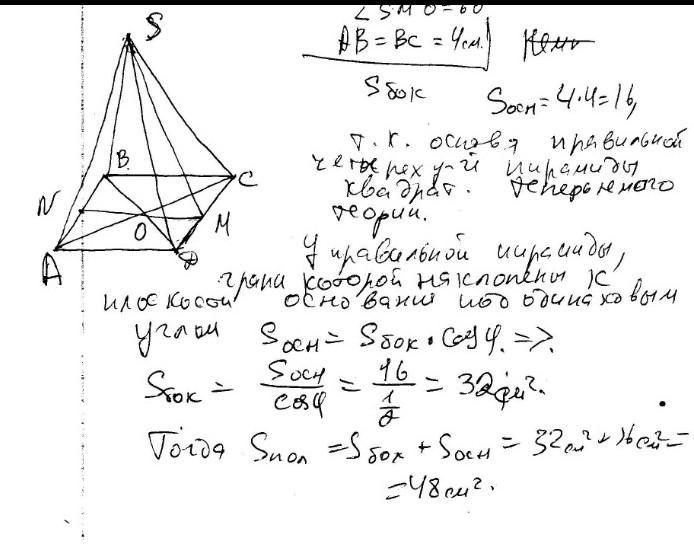 ∠SMO=60
AB=BC=4см.
Sбок
Sосн=4·4=16,
т.к. основ. правильной
четырех уг-й пирамиды
квадрат. Теперь немного
теории.
У правильной пирамиды,
грани которой наклонены к
плоскости основания под одинаковым
углом Sосн=Sбок·cosφ.=>.
Sбок=Sосн/cosφ=16/(1/2)=32см².
Тогда Sпол=Sбок+Sосн=32см²+16см²=
=48см².
S
B
C
N
O
M
A
D